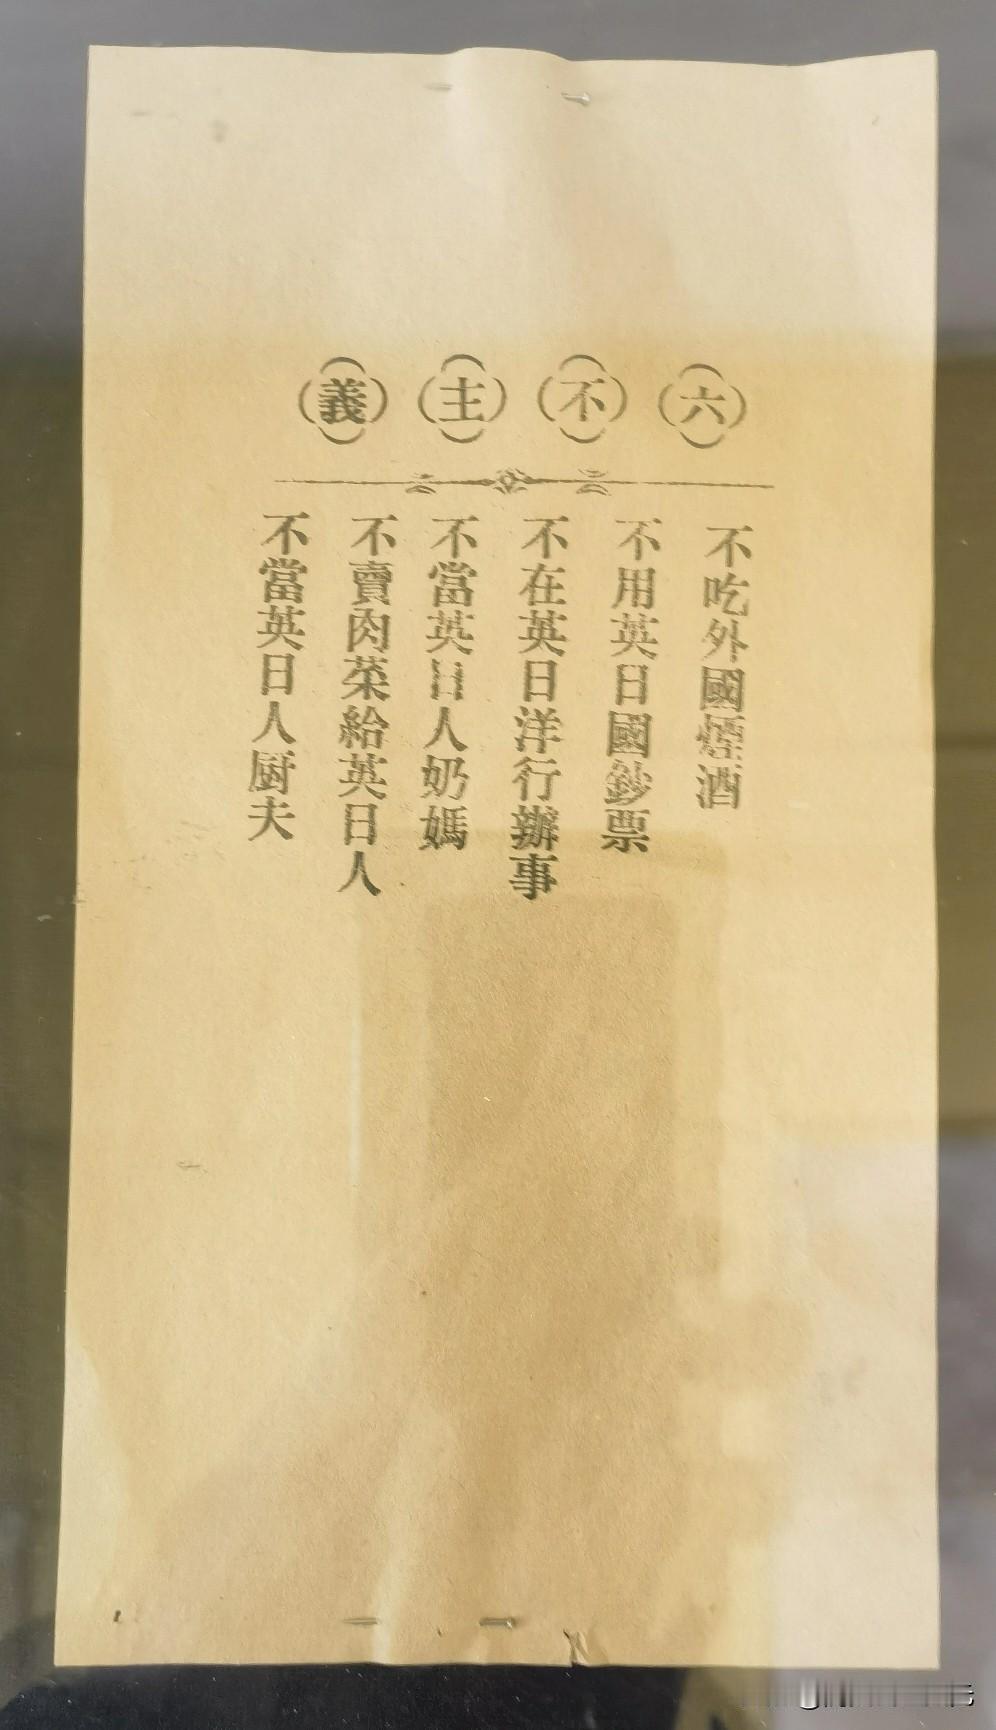 六不主義
不吃外國煙酒
不用英日國鈔票
不在英日洋行辦事
不當英日人奶媽
不賣肉菜給英日人
不當英日人厨夫